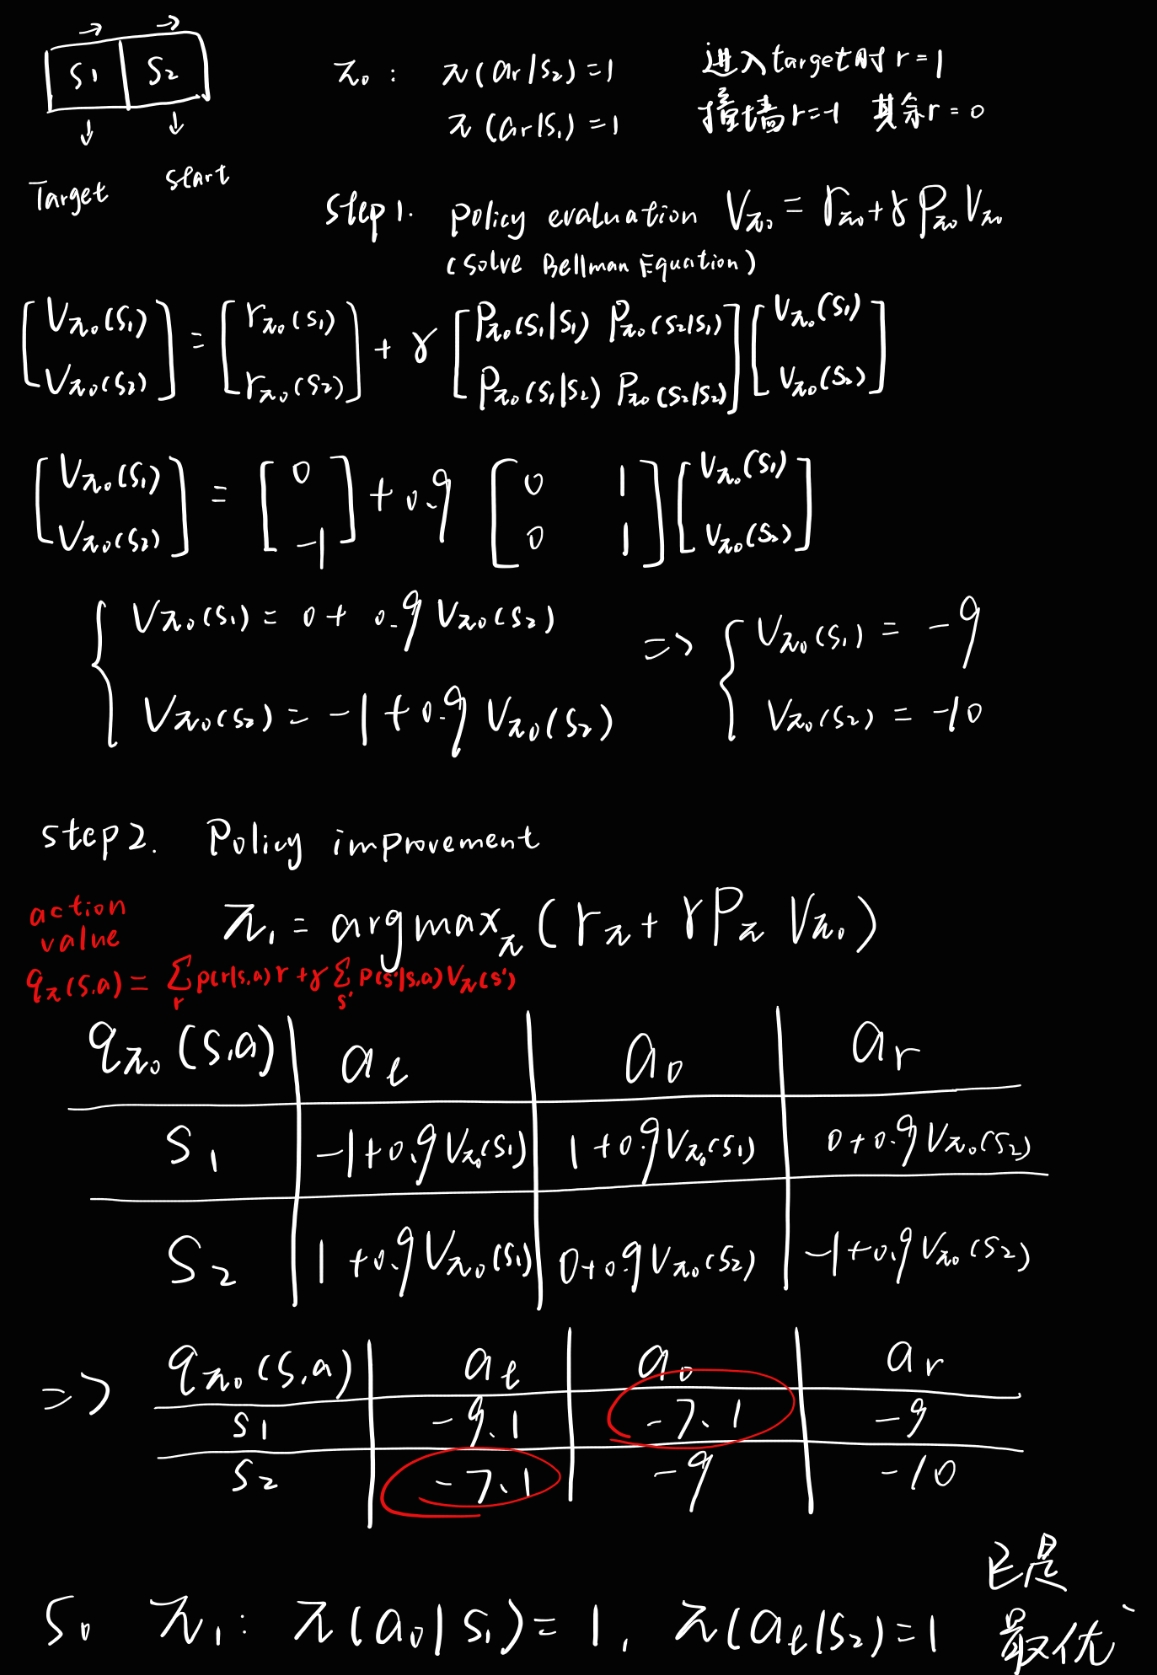 → →
S1 S2
↓ ↓
Target start
π₀: π(ar|s₂)=1 进入target时r=1
π(ar|s₁)=1 撞墙r=-1 其余r=0
step1. policy evaluation Vπ₀ = rπ₀+γPπ₀Vπ₀
(solve Bellman Equation)
[Vπ₀(s₁) Vπ₀(s₂)] = [rπ₀(s₁) rπ₀(s₂)] + γ [Pπ₀(s₁|s₁) Pπ₀(s₂|s₁) Pπ₀(s₁|s₂) Pπ₀(s₂|s₂)] [Vπ₀(s₁) Vπ₀(s₂)]
[Vπ₀(s₁) Vπ₀(s₂)] = [0 -1] + 0.9 [0 1 0 1] [Vπ₀(s₁) Vπ₀(s₂)]
{ Vπ₀(s₁) = 0 + 0.9 Vπ₀(s₂) => { Vπ₀(s₁) = -9
Vπ₀(s₂) = -1 + 0.9 Vπ₀(s₂) Vπ₀(s₂) = -10
step2. Policy improvement
action
value
π₁ = argmaxπ (rπ + γPπ Vπ₀)
qπ(s,a) = Σr p(r|s,a) r + γ Σs' P(s'|s,a) Vπ(s')
qπ₀(s,a) aℓ a₀ ar
S₁ -1+0.9Vπ₀(s₁) 1+0.9Vπ₀(s₁) 0+0.9Vπ₀(s₂)
S₂ 1+0.9Vπ₀(s₁) 0+0.9Vπ₀(s₂) -1+0.9Vπ₀(s₂)
=> qπ₀(s,a) aℓ a₀ ar
S₁ -9.1 -7.1 -9
S₂ -7.1 -9 -10
So π₁: π(a₀|s₁)=1, π(aℓ|s₂)=1
已是
最优